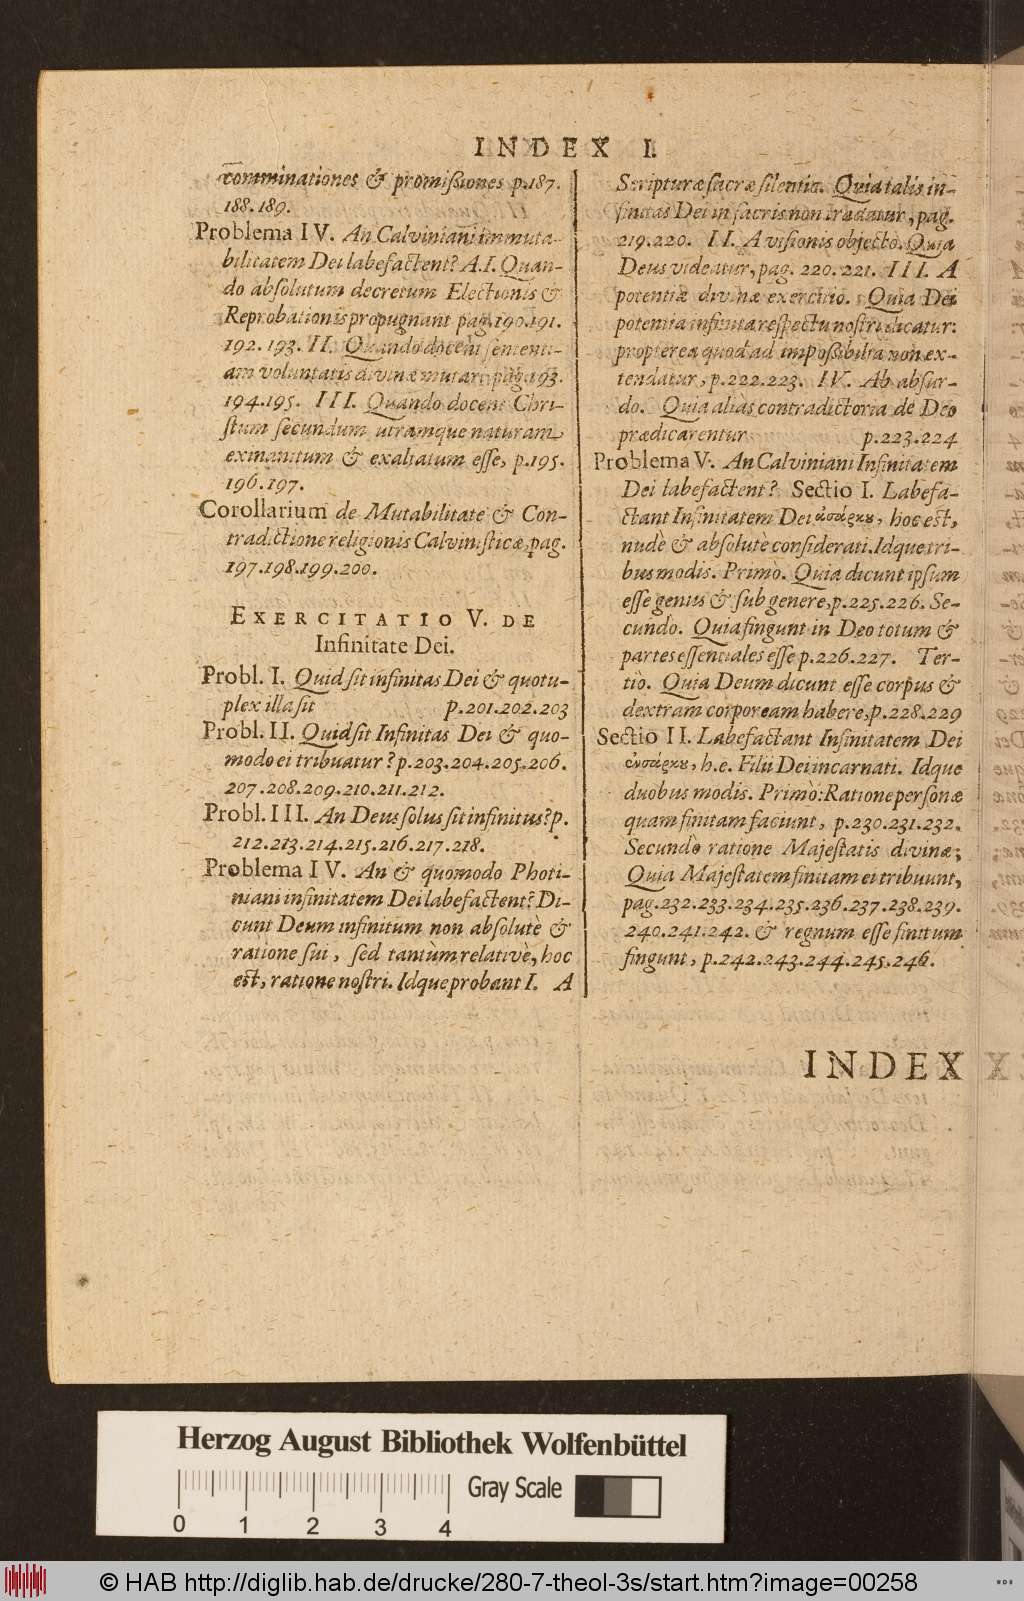 INDEX I.
comminationes & promißiones p.187.
188.189.
Problema IV. An Calviniani immuta-
bilitatem Dei labefactent? A.I. Quan-
do absolutum decretum Electionis &
Reprobationis propugnant pag.190.191.
192.193. II. Quando docent sententi-
am voluntatis divinæ mutari pag.193.
194.195. III. Quando docent Chri-
stum secundum utramque naturam
exinanitum & exaltatum esse, p.195.
196.197.
Corollarium de Mutabilitate & Con-
tradictione religionis Calvinisticæ, pag.
197.198.199.200.
EXERCITATIO V. DE
Infinitate Dei.
Probl. I. Quid sit infinitas Dei & quotu-
plex illa sit p.201.202.203
Probl. II. Quid sit Infinitas Dei & quo-
modo ei tribuatur? p.203.204.205.206.
207.208.209.210.211.212.
Probl. III. An Deus solus sit infinitus? p.
212.213.214.215.216.217.218.
Problema IV. An & quomodo Photi-
niani infinitatem Dei labefactent? Di-
cunt Deum infinitum non absolutè &
ratione sui, sed tantùm relativè, hoc
est, ratione nostri. Idque probant I. A
Scripturæ sacræ silentio. Quia talis in-
finitas Dei in sacris non tradatur, pag.
219.220. II. A visionis objectò. Quia
Deus videatur, pag. 220.221. III. A
potentiæ divinæ exercitio. Quia Dei
potentia infinita respectu nostri dicatur:
propterea quod ad impoßibilia non ex-
tendatur, p.222.223. IV. Ab absur-
do. Quia alias contradictoria de Deo
prædicarentur p.223.224
Problema V. An Calviniani Infinitatem
Dei labefactent? Sectio I. Labefa-
ctant Infinitatem Dei ἀσάρκȣ, hoc est,
nudè & absolutè considerati. Idque tri-
bus modis. Primò. Quia dicunt ipsum
esse genus & sub genere, p.225.226. Se-
cundo. Quia fingunt in Deo totum &
partes essentiales esse p.226.227. Ter-
tiò. Quia Deum dicunt esse corpus &
dextram corpoream habere, p.228.229
Sectio II. Labefactant Infinitatem Dei
ἐνσάρκȣ, h.e. Filii Dei incarnati. Idque
duobus modis. Primò: Ratione personæ
quam finitam faciunt, p.230.231.232.
Secundò ratione Majestatis divinæ;
Quia Majestatem finitam ei tribuunt,
pag.232.233.234.235.236.237.238.239.
240.241.242. & regnum esse finitum
fingunt, p.242.243.244.245.246.
INDEX
Herzog August Bibliothek Wolfenbüttel
Gray Scale
0 1 2 3 4
© HAB http://diglib.hab.de/drucke/280-7-theol-3s/start.htm?image=00258